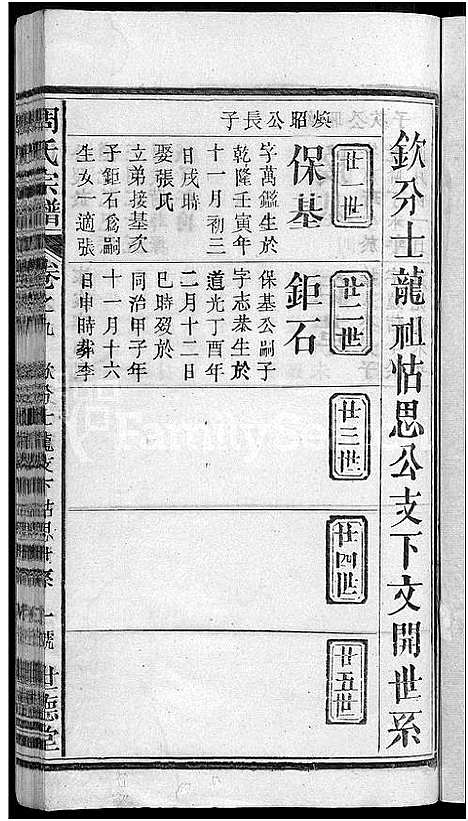 欽分士龍祖怙思公支下文開世系
廿一世
煥昭公長子
保基
字萬鑑生於
乾隆壬寅年
十一月初三
日戌時
娶張氏
立弟接基次
子鉅石爲嗣
生女一適張
廿二世
鉅石
保基公嗣子
字志恭生於
道光丁酉年
二月十二日
巳時歿於
同治甲子年
十一月十六
日申時葬李
廿三世
廿四世
廿五世
周氏宗譜
卷之九
欽分士龍支下怙思世系
一號
世德堂